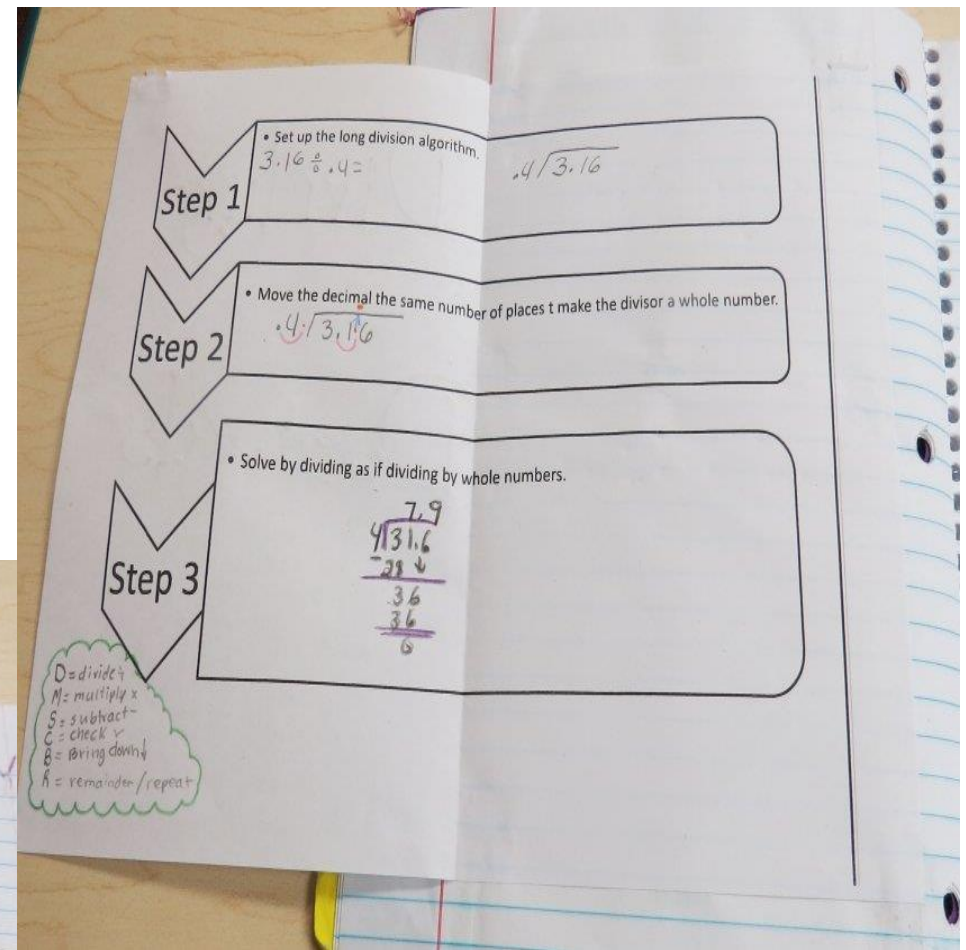 Step 1
• Set up the long division algorithm.
3.16 ÷ .4 =
.4/3.16
Step 2
• Move the decimal the same number of places t make the divisor a whole number.
.4./3.1.6
Step 3
• Solve by dividing as if dividing by whole numbers.
7.9
4/31.6
-28 ↓
36
36
0
D=divide÷
M=multiply x
S=subtract-
C=check ✓
B=Bring down↓
R=remainder/repeat